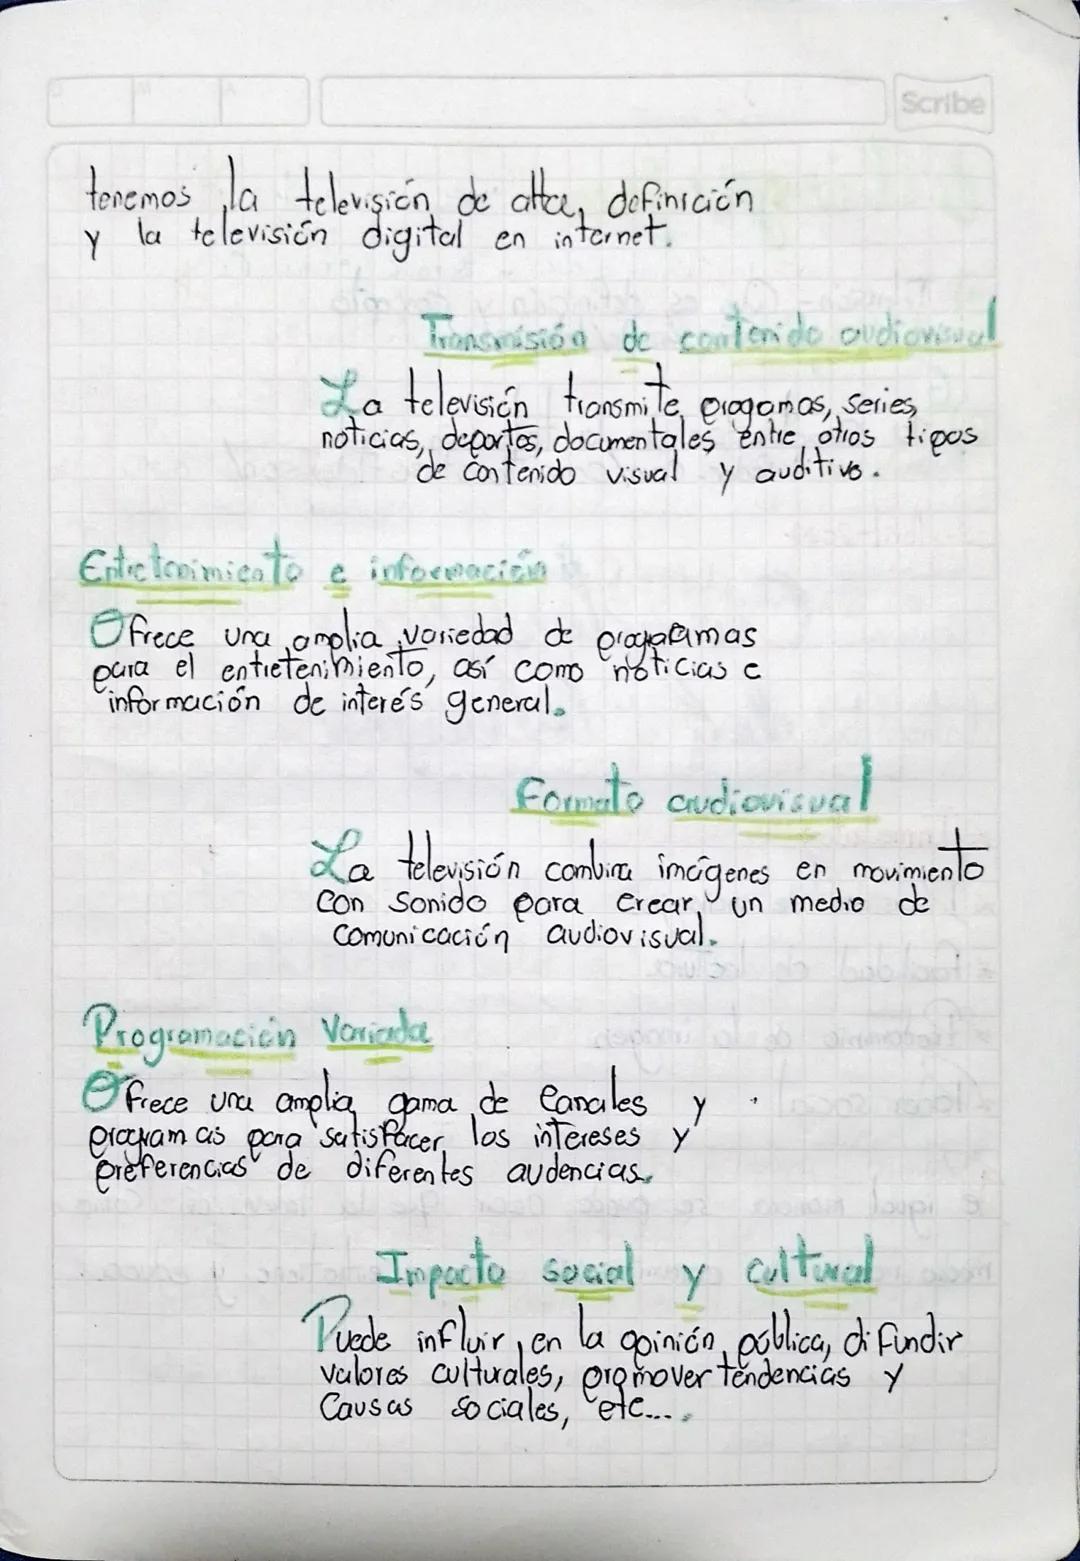 Scribe
tenemos la televisión de alta definición
y la televisión digital en internet.
Transmisión de contenido audiovisual
La televisión transmite progamas, series,
noticias, deportes, documentales entre otros tipos
de contenido visual y auditivo.
Entretenimiento e información
Ofrece una amplia variedad de programas
para el entretenimiento, así como noticias e
información de interés general.
Formato audiovisual
La televisión combina imágenes en movimiento
con sonido para crear un medio de
comunicación audiovisual.
Programación Variada
Ofrece una amplia gama de canales y
programas para satisfacer los intereses y
preferencias de diferentes audencias.
Impacto social y cultural
Puede influir en la opinión pública, difundir
valores culturales, promover tendencias y
causas sociales, etc....